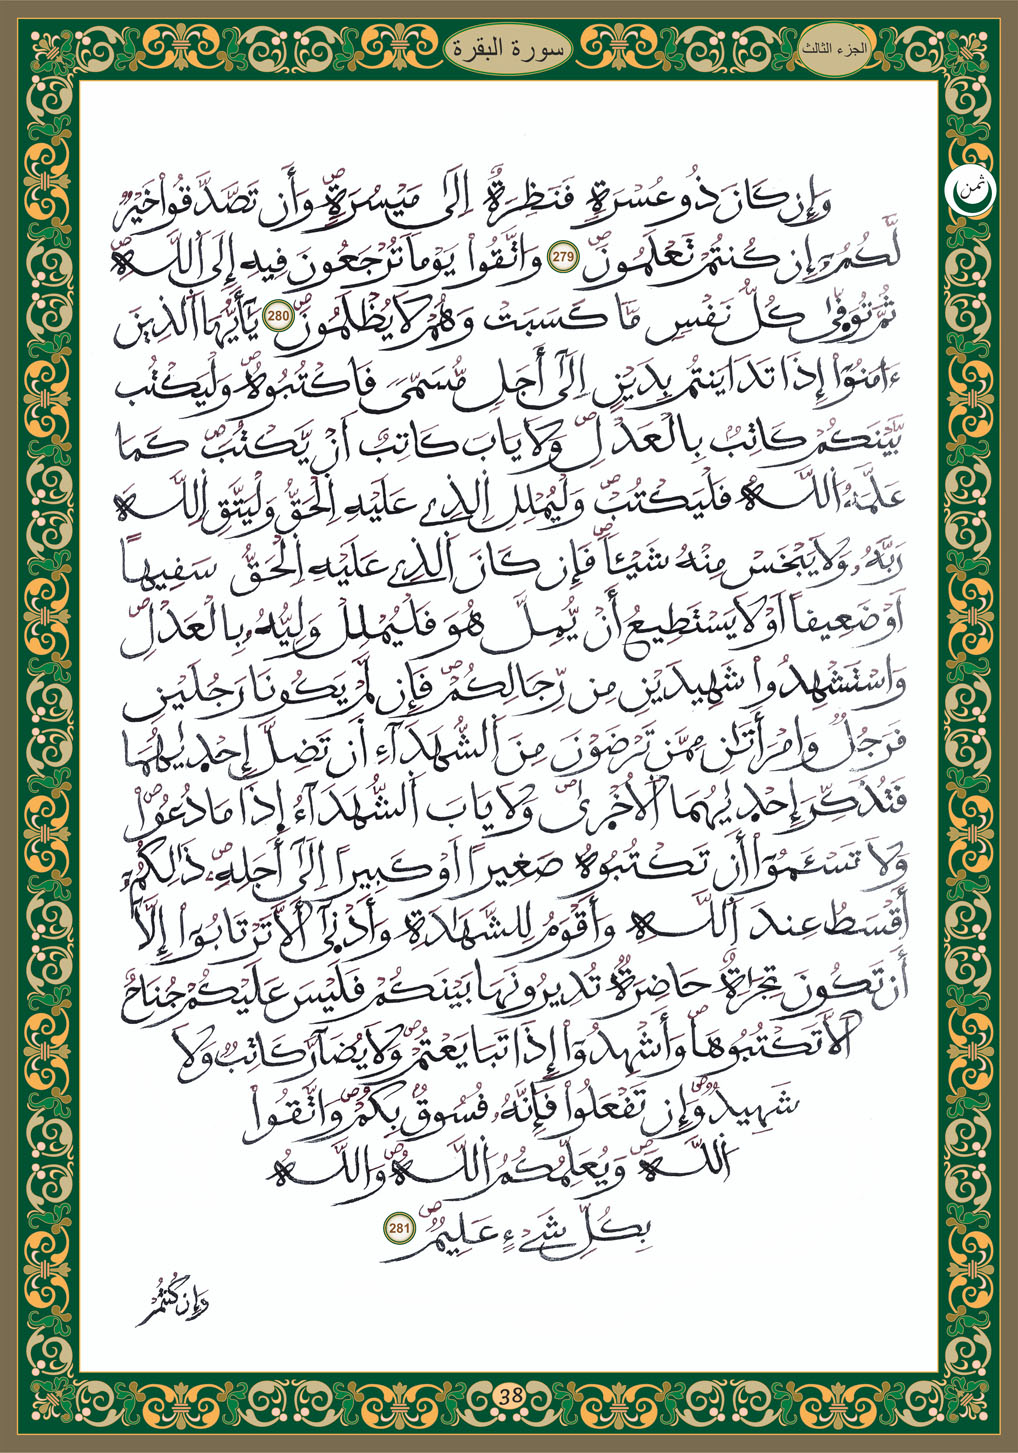 الجزء الثالث
سورة البقرة
ثمن
وَإِن كَانَ ذُو عُسْرَةٍ فَنَظِرَةٌ اِلَىٰ مَيْسُرَةٍۖ وَأَن تَصَّدَّقُواْ خَيْرٌ
لَّكُمُۥٓ إِن كُنتُمْ تَعْلَمُونَۖ 279 وَاتَّقُواْ يَوْماً تُرْجَعُونَ فِيهِ إِلَى اَللَّهِۖ
ثُمَّ تُوَفّ۪ىٰ كُلُّ نَفْسٍ مَّا كَسَبَتْ وَهُمْ لَا يُظْلَمُونَۖ 280 يَٰٓأَيُّهَا اَلذِينَ
ءَامَنُوٓاْ إِذَا تَدَايَنتُم بِدَيْنٍ اِلَىٰٓ أَجَلٍ مُّسَمّىً فَاكْتُبُوهُۖ وَلْيَكْتُب
بَّيْنَكُمْ كَاتِبٌ بِالْعَدْلِۖ وَلَا يَابَ كَاتِبٌ اَنْ يَّكْتُبَۖ كَمَا
عَلَّمَهُ اُللَّهُ فَلْيَكْتُبْۖ وَلْيُمْلِلِ اِلذِے عَلَيْهِ اِلْحَقُّ وَلْيَتَّقِ اِللَّهَ
رَبَّهُۥ وَلَا يَبْخَسْ مِنْهُ شَيْـٔاًۖ فَإِن كَانَ اَلذِے عَلَيْهِ اِلْحَقُّ سَفِيهاً
اَوْ ضَعِيفاً اَوْ لَا يَسْتَطِيعُ أَنْ يُّمِلَّ هُوَ فَلْيُمْلِلْ وَلِيُّهُۥ بِالْعَدْلِۖ
وَاسْتَشْهِدُواْ شَهِيدَيْنِ مِن رِّجَالِكُمْۖ فَإِن لَّمْ يَكُونَا رَجُلَيْنِ
فَرَجُلٌ وَامْرَأَتَٰنِ مِمَّن تَرْضَوْنَ مِنَ اَلشُّهَدَآءِ أَن تَضِلَّ إِحْد۪يٰهُمَا
فَتُذَكِّرَ إِحْد۪يٰهُمَا اَلُاخْر۪ىٰۖ وَلَا يَابَ اَلشُّهَدَآءُ إِذَا مَا دُعُواْۖ
وَلَا تَسْـَٔمُوٓاْ أَن تَكْتُبُوهُ صَغِيراً اَوْ كَبِيراً اِلَىٰٓ أَجَلِهِۦۖ ذَٰلِكُمُۥٓ
أَقْسَطُ عِندَ اَللَّهِ وَأَقْوَمُ لِلشَّهَٰدَةِ وَأَدْن۪ىٰٓ أَلَّا تَرْتَابُوٓاْ إِلَّآ
أَن تَكُونَ تِجَٰرَةٌ حَاضِرَةٌ تُدِيرُونَهَا بَيْنَكُمْ فَلَيْسَ عَلَيْكُمْ جُنَاحٌ
اَلَّا تَكْتُبُوهَاۖ وَأَشْهِدُوٓاْ إِذَا تَبَايَعْتُمْۖ وَلَا يُضَآرَّ كَاتِبٌ وَلَا
شَهِيدٌۖ وَإِن تَفْعَلُواْ فَإِنَّهُۥ فُسُوقٌۢ بِكُمْۖ وَاتَّقُواْ
اُللَّهَۖ وَيُعَلِّمُكُمُ اُللَّهُۖ وَاللَّهُ
بِكُلِّ شَےْءٍ عَلِيمٌۖ 281
وَإِن كُنتُمْ
38